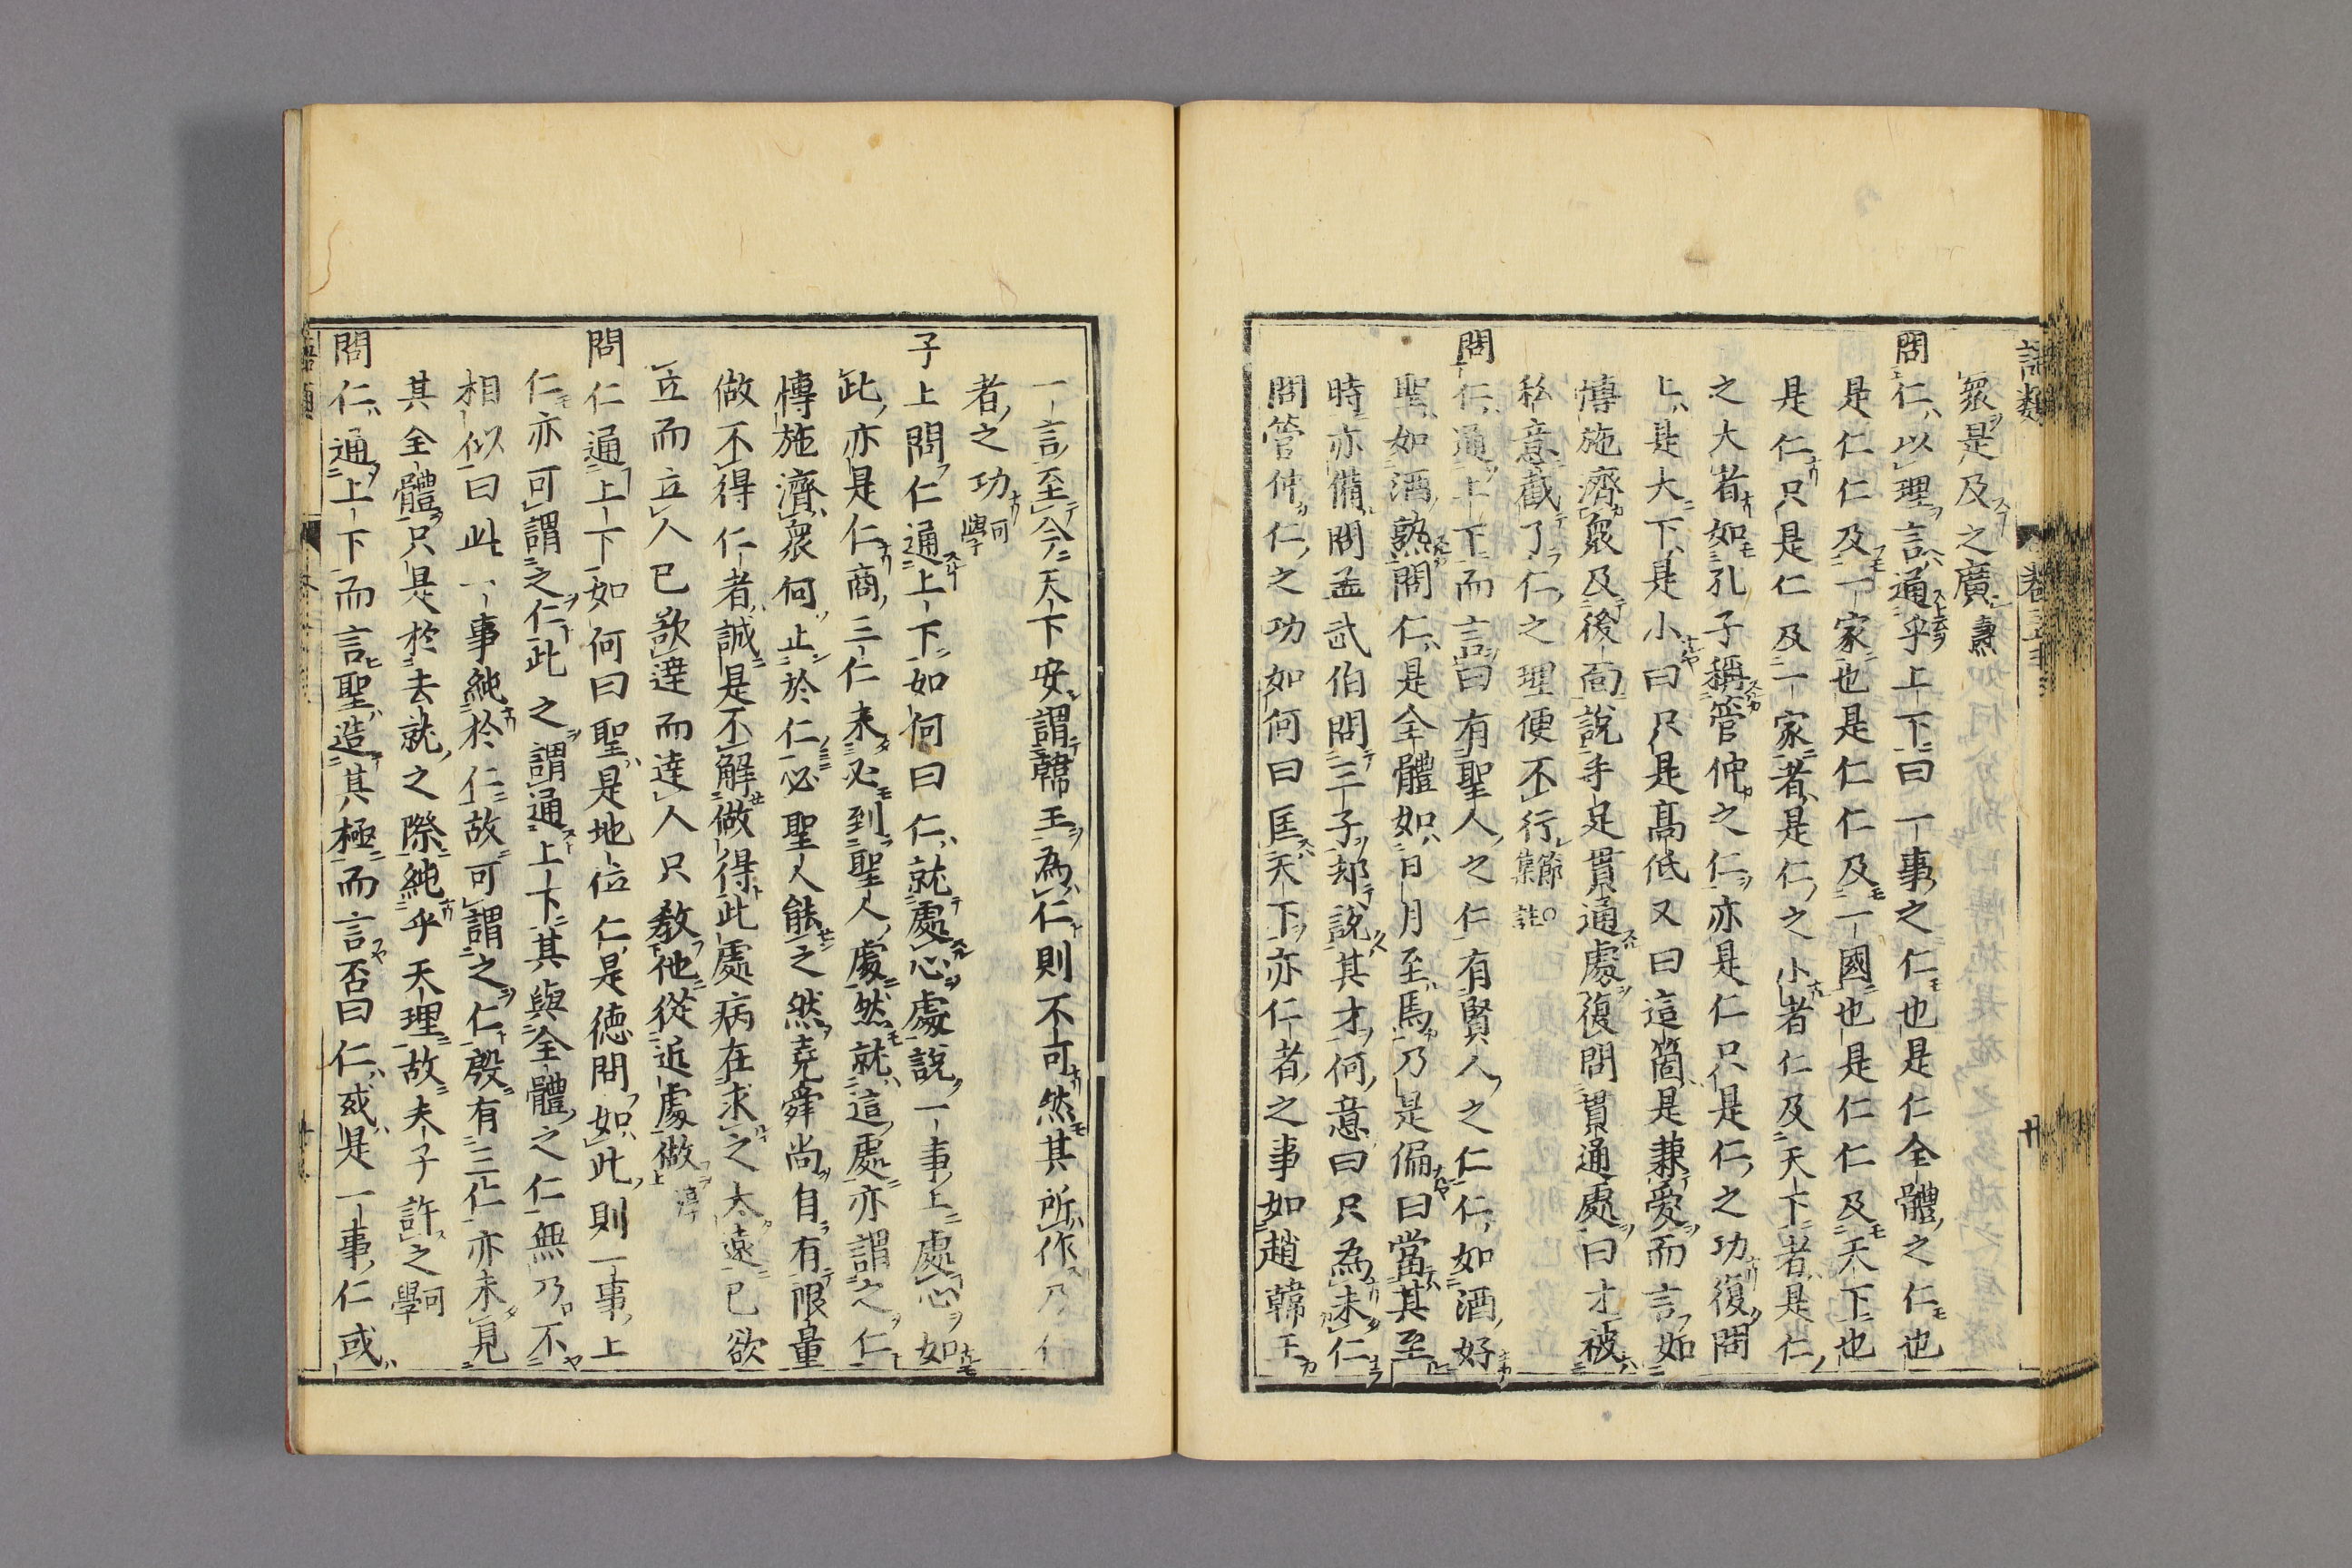 語類
卷三十三
廿
衆是及之廣燾
問仁以理言通乎上下曰一事之仁也是仁全體之仁也
是仁仁及一家也是仁仁及一國也是仁仁及天下也
是仁只是仁及一家者是仁之小者仁及天下者是仁
之大者如孔子稱管仲之仁亦是仁只是仁之功復問
上是大下是小曰只是高低又曰這箇是兼愛而言如
博施濟衆及後面說手足貫通處復問貫通處曰才被
私意截了仁之理便不行節集註
問仁通上下而言曰有聖人之仁有賢人之仁仁如酒好
聖如酒熟問仁是全體如日月至焉乃是偏曰當其至
時亦備問孟武伯問三子却說其才何意曰只為未仁
問管仲仁之功如何曰匡天下亦仁者之事如趙韓王
一言至今天下安謂韓王為仁則不可然其所作乃仁
者之功可學
子上問仁通上下如何曰仁就處心處說一事上處心如
此亦是仁商三仁未必到聖人處然就這處亦謂之仁
博施濟衆何止於仁必聖人能之然堯舜尚自有限量
做不得仁者誠是不解做得此處病在求之太遠已欲
立而立人已欲達而達人只教他從近處做淳
問仁通上下如何曰聖是地位仁是德問如此則一事上
仁亦可謂之仁此之謂通上下其與全體之仁無乃不
相似曰此一事純於仁故可謂之仁殷有三仁亦未見
其全體只是於去就之際純乎天理故夫子許之可學
問仁通上下而言聖造其極而言否曰仁或是一事仁或